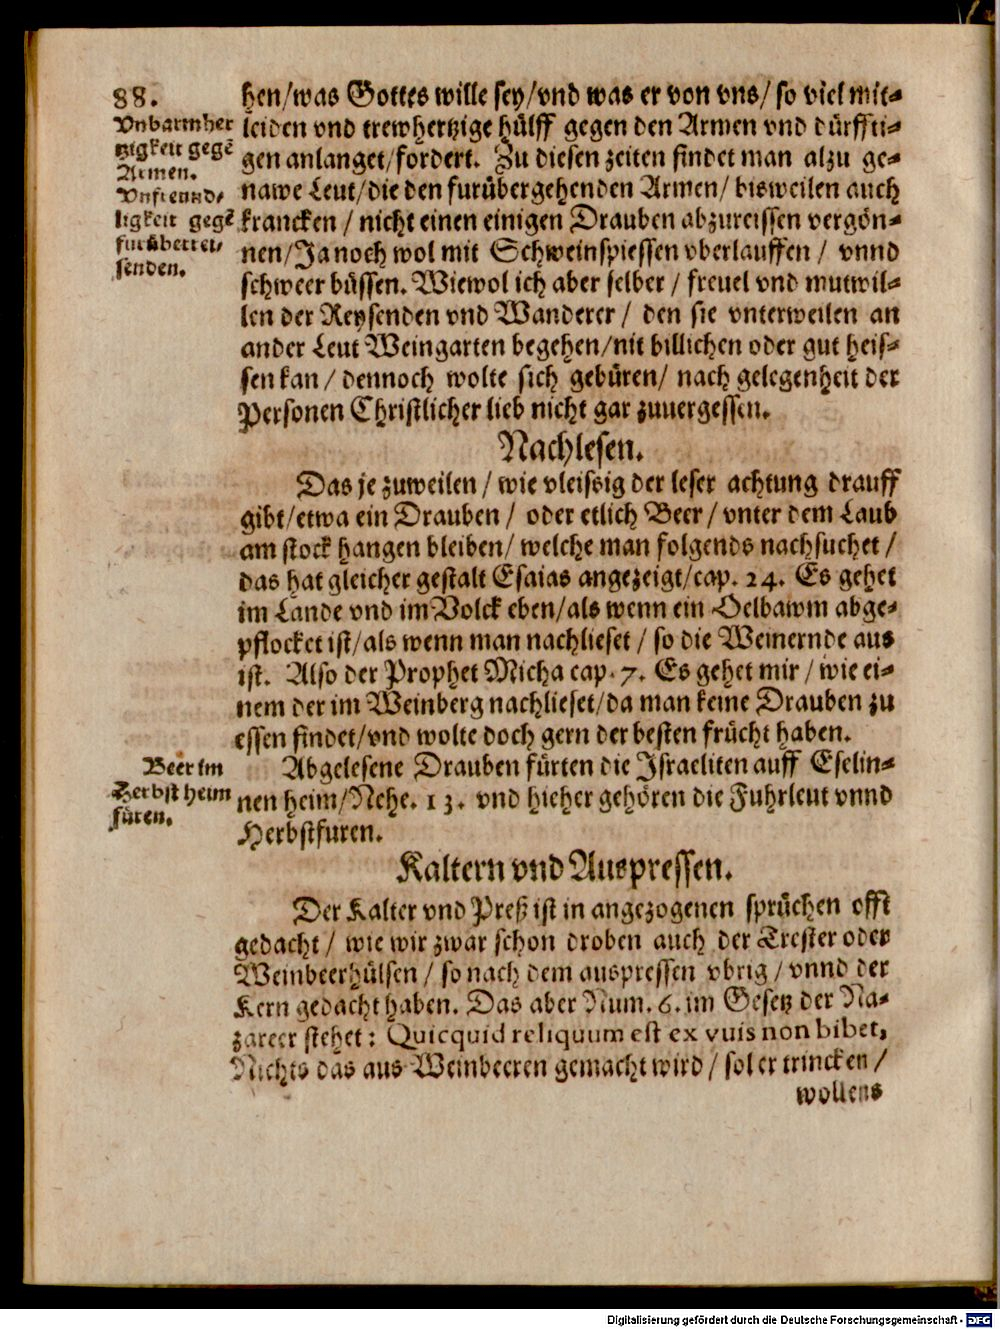 88.
Vnbarmher
tzigkeit gegē
Armen.
Vnfreund-
ligkeit gegē
furüberrei-
senden.
hen/was Gottes wille sey/vnd was er von vns/ so viel mit-
leiden vnd trewhertzige hülff gegen den Armen vnd dürffti-
gen anlanget/fordert. Zu diesen zeiten findet man alzu ge-
nawe Leut/die den furübergehenden Armen/ bisweilen auch
krancken / nicht einen einigen Drauben abzureissen vergön-
nen/Ja noch wol mit Schweinspiessen vberlauffen / vnnd
schweer büssen. Wiewol ich aber selber / freuel vnd mutwil-
len der Reysenden vnd Wanderer / den sie vnterweilen an
ander Leut Weingarten begehen/nit billichen oder gut heis-
sen kan / dennoch wolte sich gebüren/ nach gelegenheit der
Personen Christlicher lieb nicht gar zuuergessen.
Nachlesen.
Das je zuweilen / wie vleissig der leser achtung drauff
gibt/etwa ein Drauben / oder etlich Beer / vnter dem Laub
am stock hangen bleiben/ welche man folgends nachsuchet /
das hat gleicher gestalt Esaias angezeigt/cap. 24. Es gehet
im Lande vnd im Volck eben/als wenn ein Oelbawm abge-
pflocket ist/als wenn man nachlieset / so die Weinernde aus
ist. Also der Prophet Micha cap. 7. Es gehet mir / wie ei-
nem der im Weinberg nachlieset/da man keine Drauben zu
essen findet/vnd wolte doch gern der besten frücht haben.
Beer im
Herbst heim
füren.
Abgelesene Drauben fürten die Israeliten auff Eselin-
nen heim/Nehe. 13. vnd hieher gehören die Fuhrleut vnnd
Herbstfuren.
Kaltern vnd Auspressen.
Der Kalter vnd Preß ist in angezogenen sprüchen offt
gedacht / wie wir zwar schon droben auch der Trester oder
Weinbeerhülsen / so nach dem auspressen vbrig / vnnd der
Kern gedacht haben. Das aber Num. 6. im Gesetz der Na-
zareer stehet: Quicquid reliquum est ex vuis non bibet,
Nichts das aus Weinbeeren gemacht wird / sol er trincken /
wollens
Digitalisierung gefördert durch die Deutsche Forschungsgemeinschaft - DFG